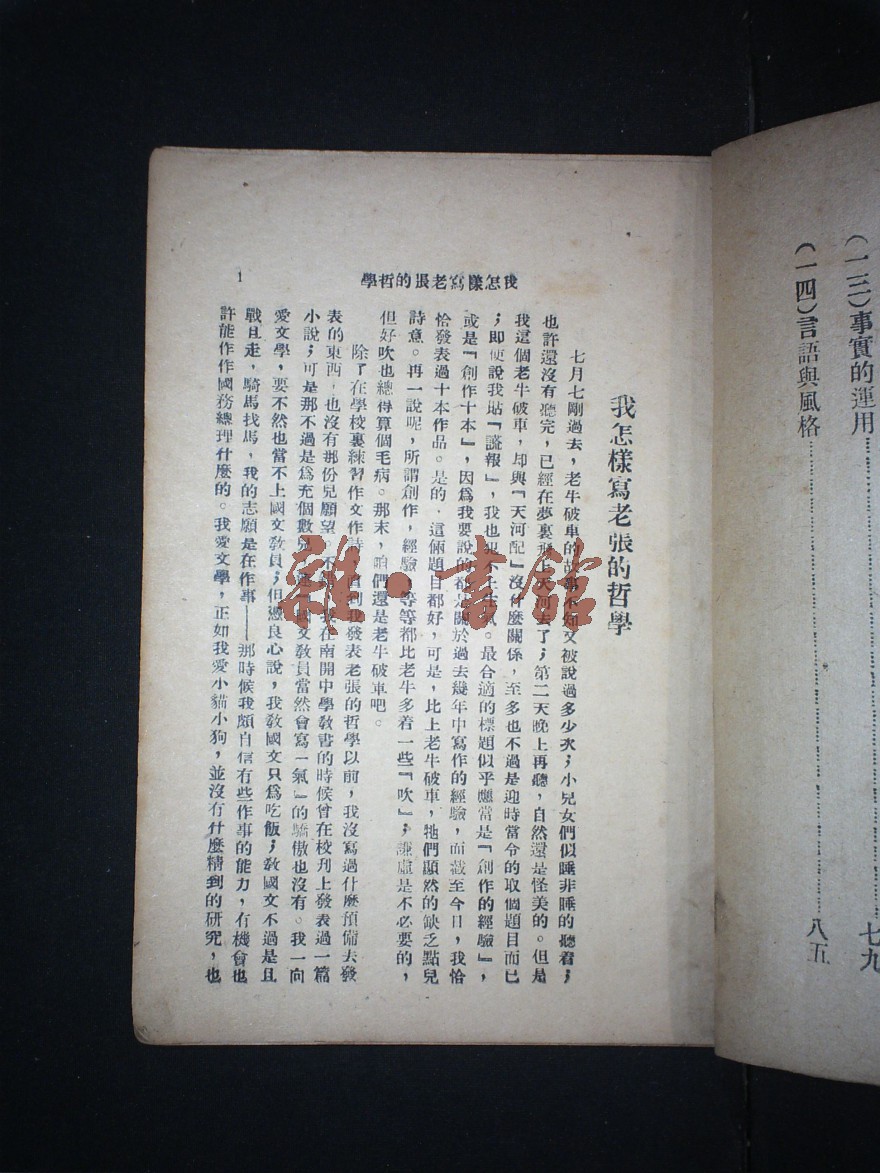 (一三)事實的運用……七九
(一四)言語與風格……八五
我怎樣寫老張的哲學
1
我怎樣寫老張的哲學
七月七剛過去,老牛破車的故事不知又被說過多少次;小兒女們似睡非睡的聽着;
也許還沒有聽完,已經在夢裏飛上天河去了;第二天晚上再聽,自然還是怪美的。但是
我這個老牛破車,却與『天河配』沒什麼關係,至多也不過是迎時當令的取個題目而已
;卽便說我貼『謊報』,我也犯不上生氣。最合適的標題似乎應當是『創作的經驗』,
或是『創作十本』,因爲我要說的都是關於過去幾年中寫作的經驗,而截至今日,我恰
恰發表過十本作品。是的,這倆題目都好,可是,比上老牛破車,牠們顯然的缺乏點兒
詩意。再一說呢,所謂創作,經驗,等等都比老牛多着一些『吹』;謙虛是不必要的,
但好吹也總得算個毛病。那末,咱們還是老牛破車吧。
除了在學校裏練習作文作詩,直到我發表老張的哲學以前,我沒寫過什麼預備去發
表的東西,也沒有那份兒願望。不錯,我在南開中學敎書的時候曾在校刋上發表過一篇
小說;可是那不過是爲充個數兒,連『國文敎員當然會寫一氣』的驕傲也沒有。我一向
愛文學,要不然也當不上國文敎員;但憑良心說,我敎國文只爲吃飯;敎國文不過是且
戰且走,騎馬找馬,我的志願是在作事——那時候我頗自信有些作事的能力,有機會也
許能作作國務總理什麼的。我愛文學,正如我愛小貓小狗,並沒有什麼精到的研究,也
雜·書館